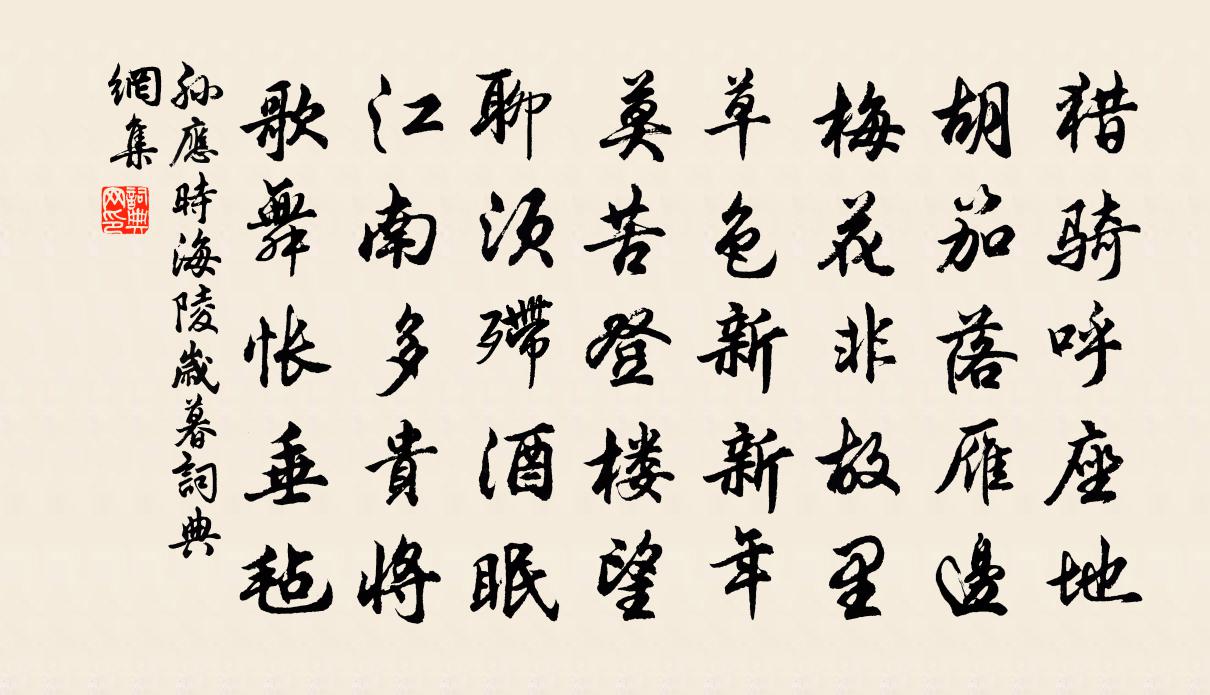 猎骑呼座地
胡笳落雁邊
梅花非故里
草色新新年
莫苦登楼望
聊须殢酒眠
江南多貴将
歌舞帐垂毡
孙應時海陵歲暮詞典
網集
詞典網印